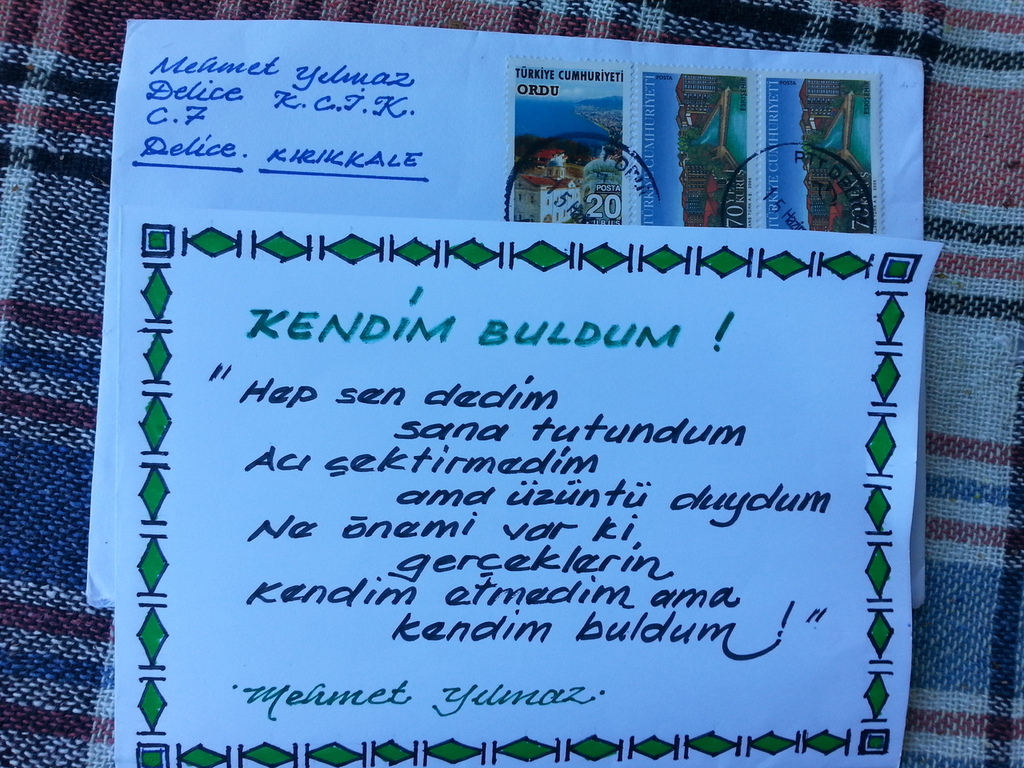 Mehmet Yılmaz
Delice K.C.İ.K.
C.7
Delice. KIRIKKALE
TÜRKİYE CUMHURİYETİ
ORDU
POSTA
20
POSTA
TÜRKİYE CUMHURİYETİ
70
POSTA
TÜRKİYE CUMHURİYETİ
70
KENDİM BULDUM !
"Hep sen dedim
sana tutundum
Acı çektirmedim
ama üzüntü duydum
Ne önemi var ki
gerçeklerin
kendim etmedim ama
kendim buldum !"
Mehmet Yılmaz.